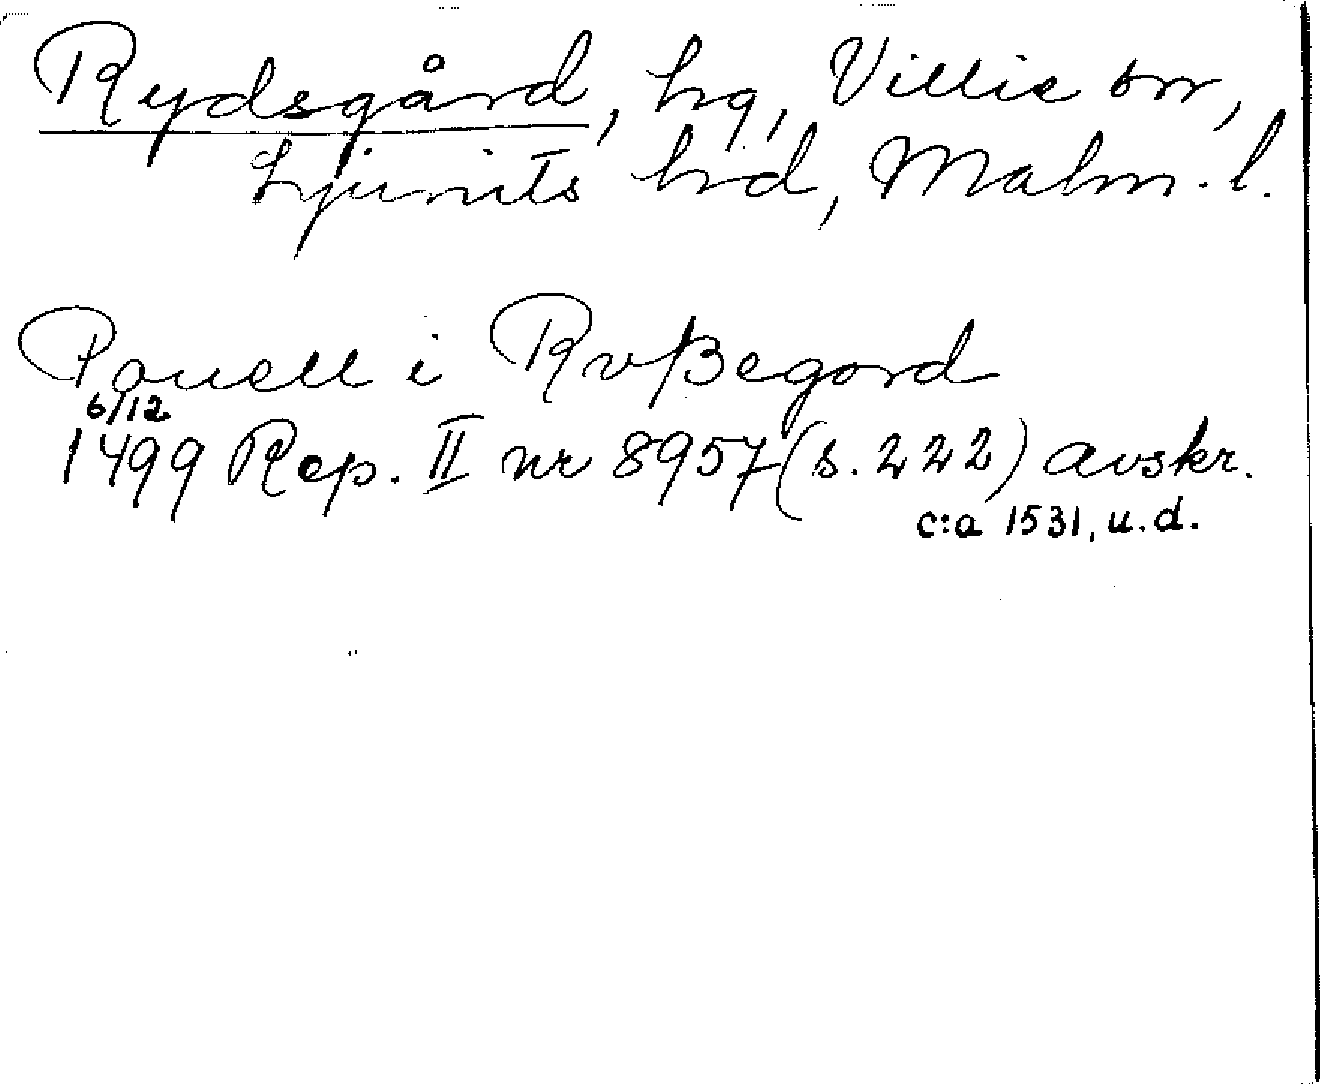 Rydsgård, hg, Villie sn,
Ljunits hrd, Malm. l.
Pouell i Rvßegord
6/12
1499 Rep. II nr 8957 (s. 222) avskr.
c:a 1531, u.d.